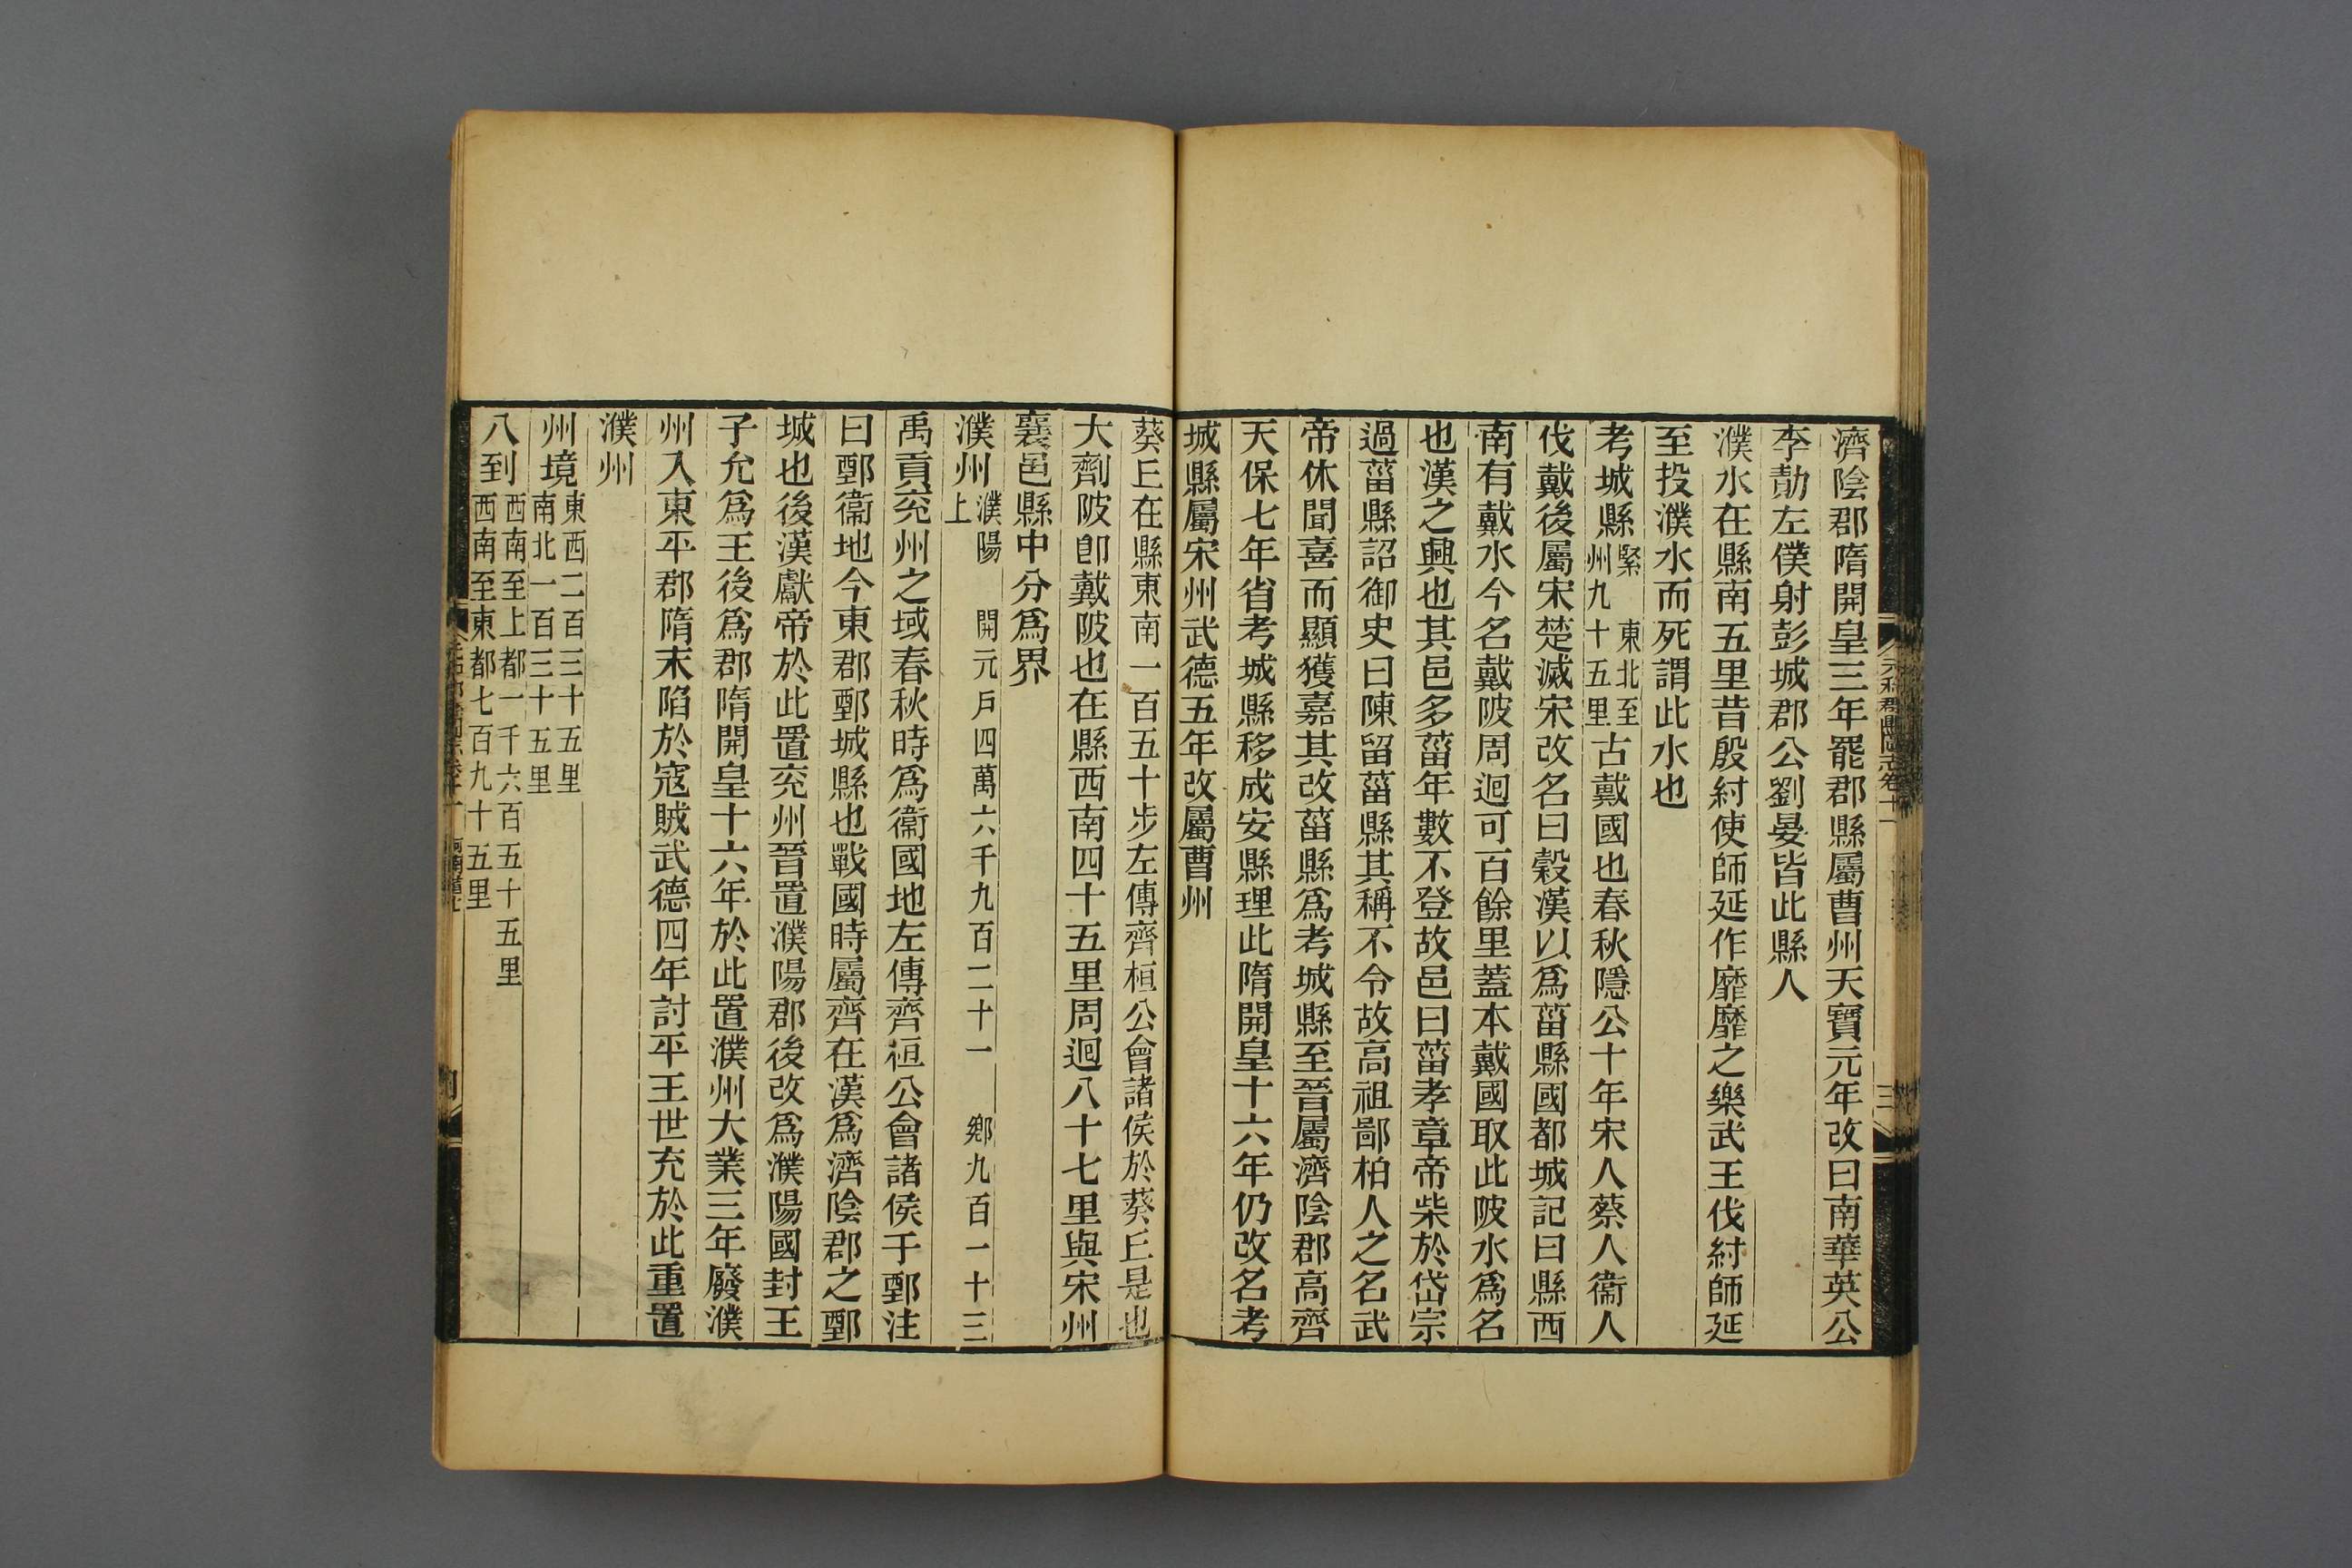 元和郡縣圖志卷十一
三
濟陰郡隋開皇三年罷郡縣屬曹州天寶元年改曰南華英公
李勣左僕射彭城郡公劉晏皆此縣人
濮水在縣南五里昔殷紂使師延作靡靡之樂武王伐紂師延
至投濮水而死謂此水也
考城縣緊 東北至州九十五里古戴國也春秋隱公十年宋人蔡人衞人
伐戴後屬宋楚滅宋改名曰穀漢以爲葘縣國都城記曰縣西
南有戴水今名戴陂周迴可百餘里蓋本戴國取此陂水爲名
也漢之興也其邑多葘年數不登故邑曰葘孝章帝柴於岱宗
過葘縣詔御史曰陳留葘縣其稱不令故高祖鄙柏人之名武
帝休聞喜而顯獲嘉其改葘縣爲考城縣至晉屬濟陰郡高齊
天保七年省考城縣移成安縣理此隋開皇十六年仍改名考
城縣屬宋州武德五年改屬曹州
葵丘在縣東南一百五十步左傳齊桓公會諸侯於葵丘是也
大劑陂卽戴陂也在縣西南四十五里周迴八十七里與宋州
襄邑縣中分爲界
濮州濮陽上 開元戶四萬六千九百二十一 鄉九百一十三
禹貢兖州之域春秋時爲衞國地左傳齊桓公會諸侯于鄄注
曰鄄衞地今東郡鄄城縣也戰國時屬齊在漢爲濟陰郡之鄄
城也後漢獻帝於此置兖州晉置濮陽郡後改爲濮陽國封王
子允爲王後爲郡隋開皇十六年於此置濮州大業三年廢濮
州入東平郡隋末陷於寇賊武德四年討平王世充於此重置
濮州
州境東西二百三十五里南北一百三十五里
八到西南至上都一千六百五十五里西南至東都七百九十五里
河南道七